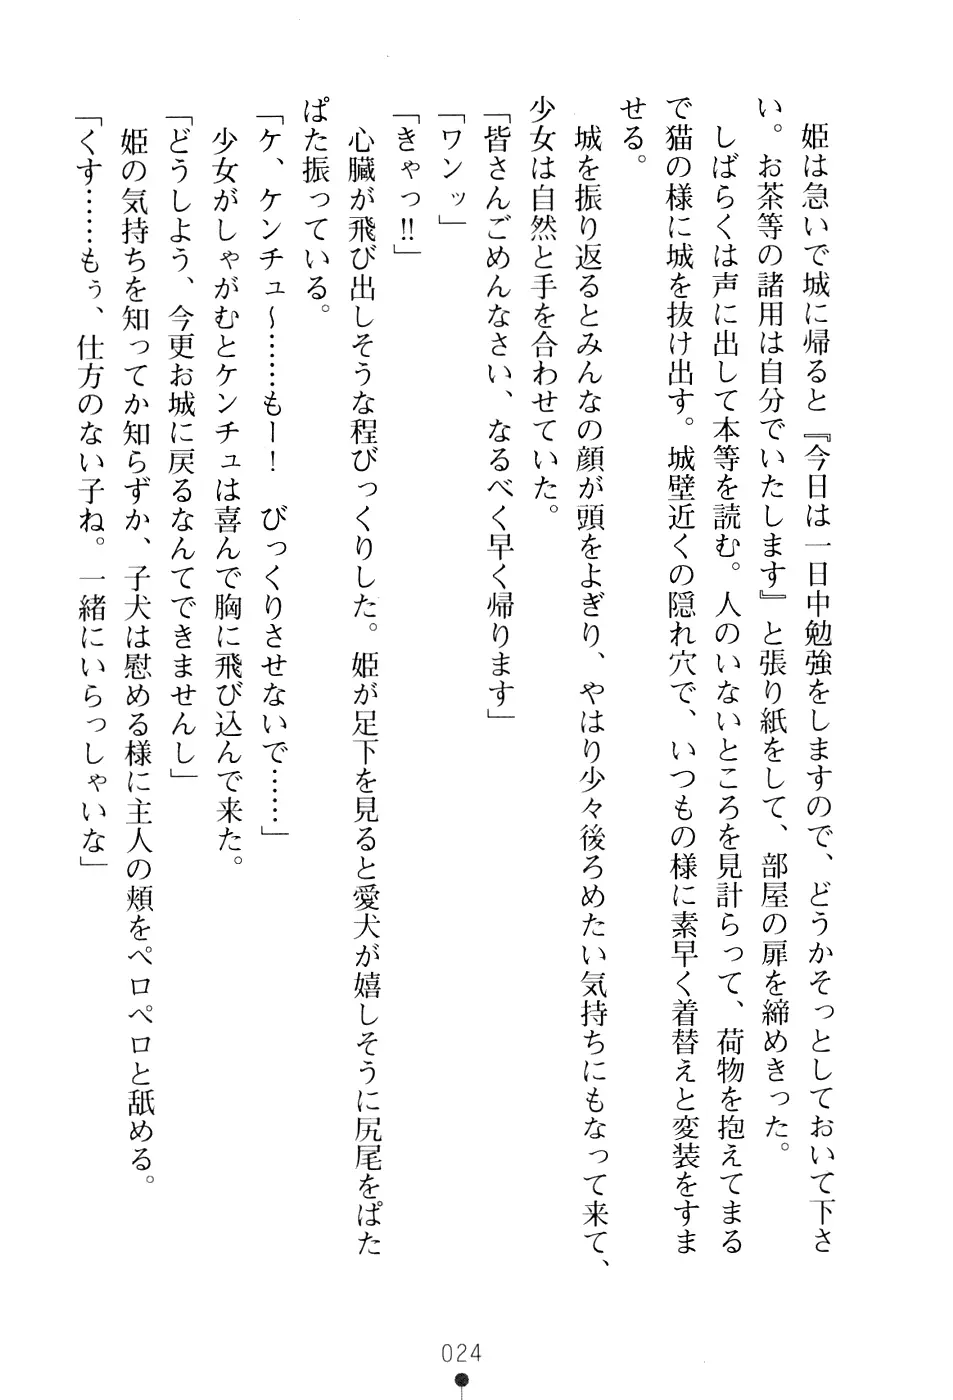 姫は急いで城に帰ると『今日は一日中勉強をしますので、どうかそっとしておいて下さ
い。お茶等の諸用は自分でいたします』と張り紙をして、部屋の扉を締めきった。
　しばらくは声に出して本等を読む。人のいないところを見計らって、荷物を抱えてまる
で猫の様に城を抜け出す。城壁近くの隠れ穴で、いつもの様に素早く着替えと変装をすま
せる。
　城を振り返るとみんなの顔が頭をよぎり、やはり少々後ろめたい気持ちにもなって来て、
少女は自然と手を合わせていた。
「皆さんごめんなさい、なるべく早く帰ります」
「ワンッ」
「きゃっ!!」
　心臓が飛び出しそうな程びっくりした。姫が足下を見ると愛犬が嬉しそうに尻尾をぱた
ぱた振っている。
「ケ、ケンチュ〜……もー！　びっくりさせないで……」
　少女がしゃがむとケンチュは喜んで胸に飛び込んで来た。
「どうしよう、今更お城に戻るなんてできませんし」
　姫の気持ちを知ってか知らずか、子犬は慰める様に主人の頬をペロペロと舐める。
「くす……もぅ、仕方のない子ね。一緒にいらっしゃいな」
024